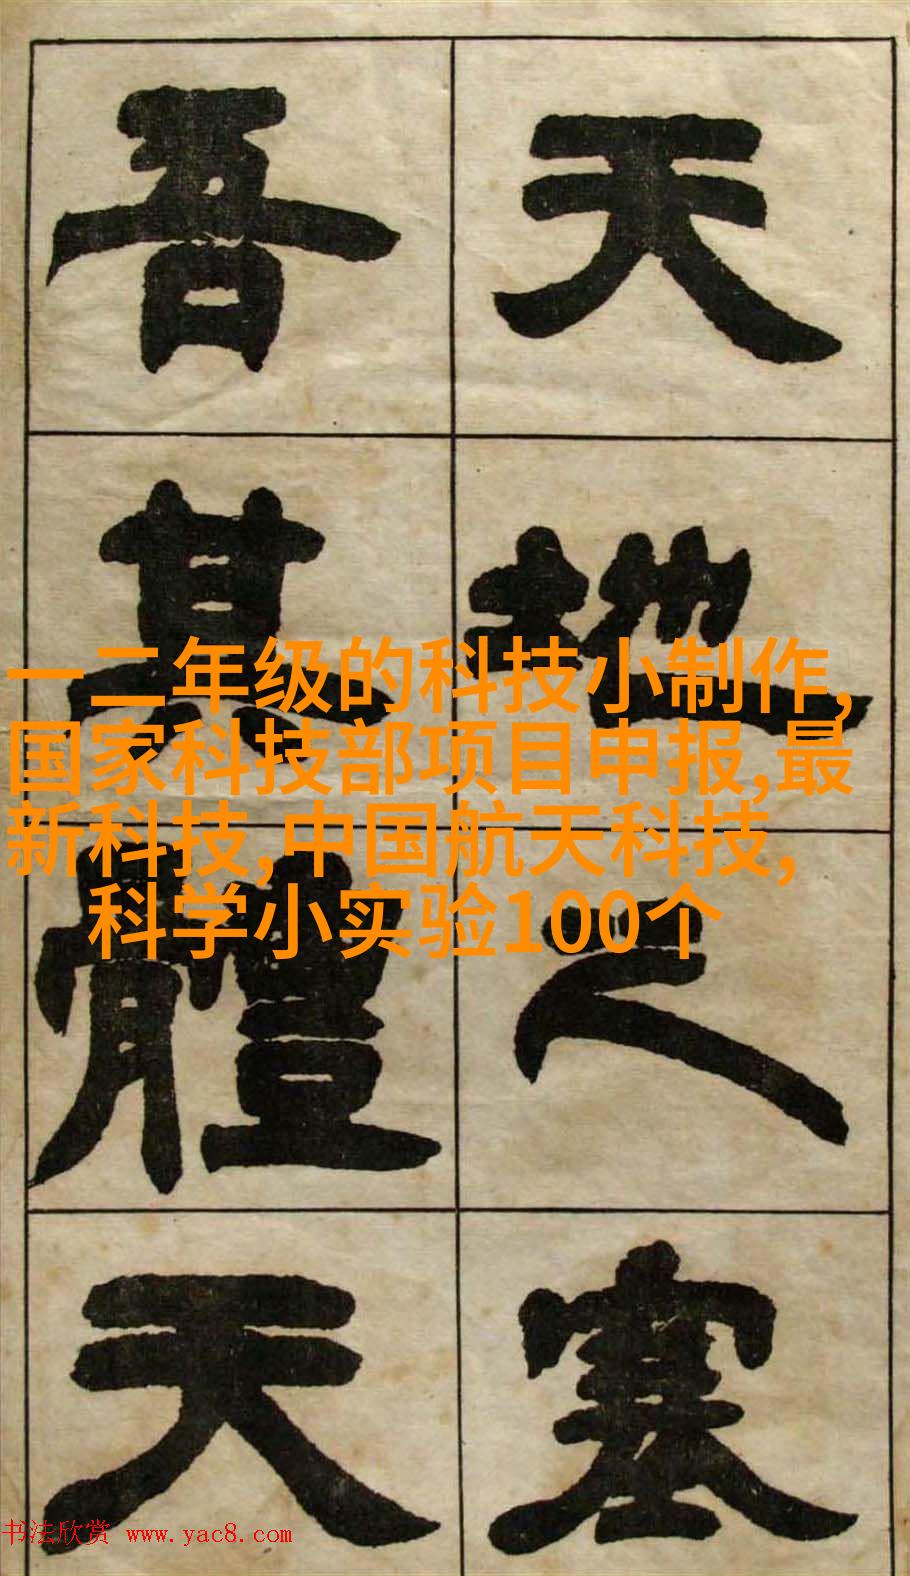 天地之塞
吾其體天
一二年级的科技小制作,
国家科技部项目申报,最
新科技,中国航天科技,
科学小实验100个
书法欣赏 www.yac8.com